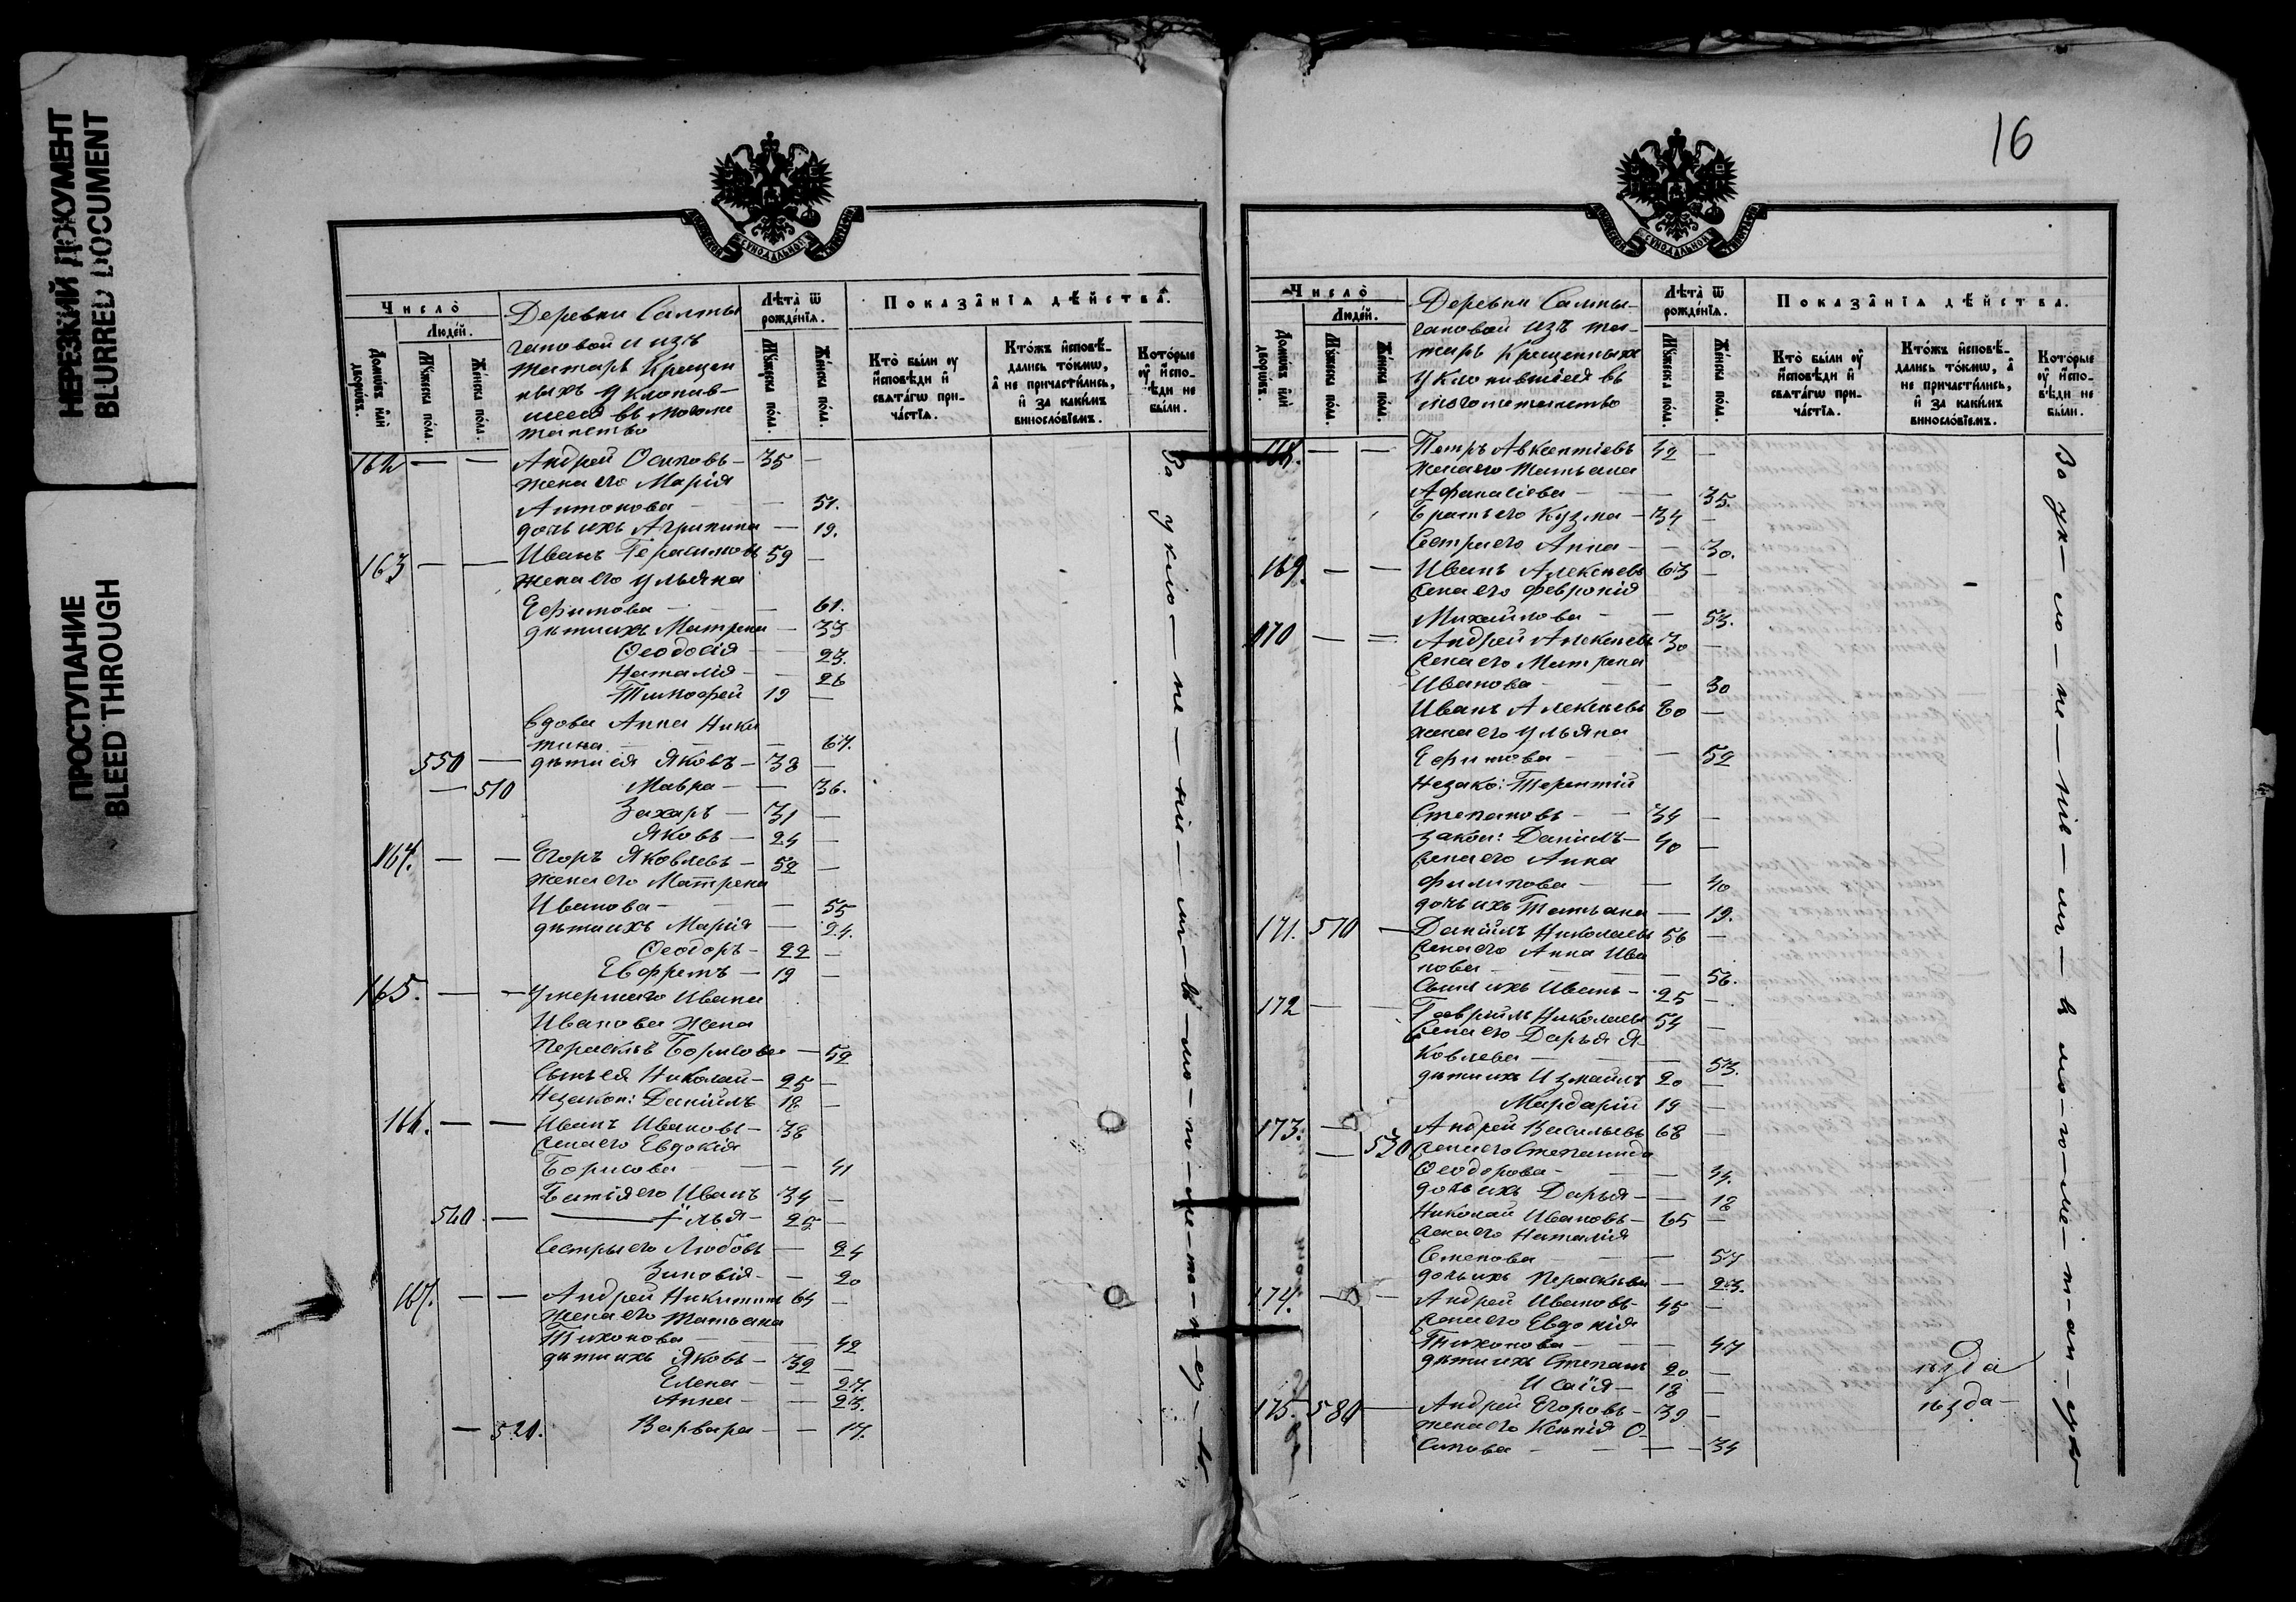 НЕРЕЗКИЙ ДОКУМЕНТ
BLURRED DOCUMENT
ПРОСТУПАНИЕ
BLEED THROUGH
Число̀
Людéй.
Домѡ́въ и҆лѝ дворѡ́въ.
Мꙋ́жеска пóла.
Жéнска пóла.
Деревни Салты
гановой и изъ
татаръ Крещен
ныхъ уклонив-
шееся въ Могоме
танство
Лѣта̀ ѿ рождéнїѧ.
Мꙋ́жеска пóла.
Жéнска пóла.
Показа̂нїѧ дѣ́йства.
Кто̀ бы́ли оу҆ и҆́сповѣди и҆ свѧта́гѡ прича́стїѧ.
Кто́жъ и҆сповѣ́дались то́кмѡ, а҆ не причасти́лись, и҆ за каки́мъ винослóвїемъ.
Кото́рые оу҆ и҆́сповѣди не бы́ли.
162 — — Андрей Осиповъ — 35 —
жена его Марія
Антонова — — 51.
дочь ихъ Агрипина — 19.
163 — — Иванъ Герасимовъ 59 —
жена его Ульяна
Ефимова — — 61.
дѣти ихъ Матрена — 33
Ѳеодосія — — 23.
Наталія — — 26
Тимофей 19 —
вдова Анна Ники
тина — — 67.
550 — дѣти ея Яковъ — 38 —
— 510 Мавра — — 36.
Захаръ — 31 —
Яковъ — 24 —
164. — — Егоръ Яковлевъ — 52 —
жена его Матрена
Иванова — — 55
дѣти ихъ Марія — 24.
Ѳеодоръ — 22 —
Евфремъ — 19 —
165. — — Умершаго Ивана
Иванова жена
Параскѣва Борисова — 52
Сынъ ея Николай — 25 —
Незакон: Даніилъ 18 —
166. — — Иванъ Ивановъ — 38
жена его Евдокія
Борисова — — 41
Братія его Иванъ 34 —
560 — — Илья — 25 —
Сестры его Любовь — 24
Зиновія — — 20
167. — — Андрей Никитинъ 64 —
жена его Татьяна
Тихонова — — 42
дѣти ихъ Яковъ — 32 —
Елена — — 27.
Анна — — 23.
— 520. Варвара — — 17.
За укло-не-ніи-ми-въ-мо-го-ме-та-н-ст-во
16
Число̀
Людéй.
Домѡ́въ и҆лѝ дворѡ́въ.
Мꙋ́жеска пóла.
Жéнска пóла.
Деревни Салты-
гановой изъ та-
таръ Крещенныхъ
уклонившіеся въ
могометанство
Лѣта̀ ѿ рождéнїѧ.
Мꙋ́жеска пóла.
Жéнска пóла.
Показа̂нїѧ дѣ́йства.
Кто̀ бы́ли оу҆ и҆́сповѣди и҆ свѧта́гѡ прича́стїѧ.
Кто́жъ и҆сповѣ́дались то́кмѡ, а҆ не причасти́лись, и҆ за каки́мъ винослóвїемъ.
Кото́рые оу҆ и҆́сповѣди не бы́ли.
168. — — Петръ Авксентіевъ 42 —
жена его Татьяна
Афанасіева — — 35.
братъ его Кузма — 34 —
Сестра его Анна — — 30.
169. — — Иванъ Алексѣевъ 63 —
жена его Февронія
Михайлова — — 53.
170 — — Андрей Алексѣевъ 30 —
жена его Матрена
Иванова — — 30
Иванъ Алексѣевъ 60 —
жена его Ульяна
Ефимова — — 52
Незако: Терентій
Степановъ — 34 —
закон: Даніилъ — 40 —
жена его Анна
Филипова — — 40
дочь ихъ Татьяна — 19.
171. 570 — Даніилъ Николаевъ 56 —
жена его Анна Ива
нова — — 56.
Сынъ ихъ Иванъ — 25 —
172 — — Гавріилъ Николаевъ 54 —
жена его Дарья Я-
ковлева — — 53.
дѣти ихъ Измаилъ 20 —
Мардарій 19 —
173. — Андрей Васильевъ 68 —
— 530 жена его Степанида
Ѳеодорова — — 34.
дочь ихъ Дарья — — 18
Николай Ивановъ — 65 —
жена его Наталія
Семенова — — 57
дочь ихъ Параскѣва — 23.
174. — — Андрей Ивановъ — 45 —
жена его Евдокія
Тихонова — — 47
дѣти ихъ Степанъ 20 —
Исаія — 18 —
175. 580 — Андрей Егоровъ — 39 —
жена его Ксенія О-
сипова — — 34
За ук-ло-не-ніе-ми-въ мо-го-ме-т-ан-ство